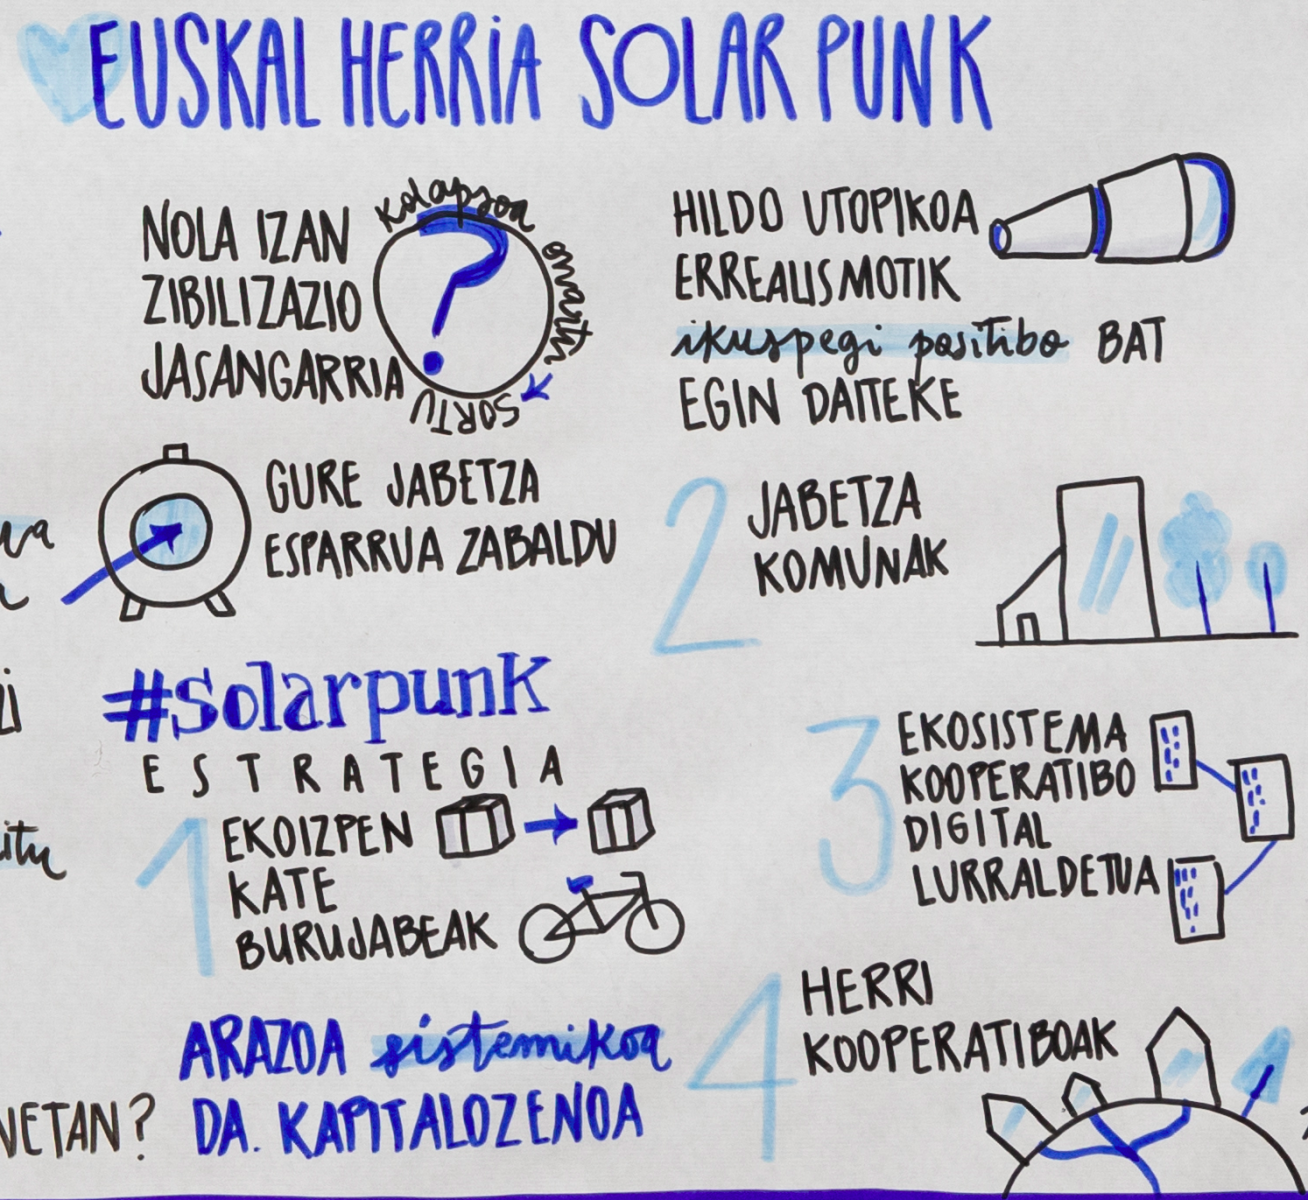 EUSKAL HERRIA SOLAR PUNK
NOLA IZAN
ZIBILIZAZIO
JASANGARRIA
Kolapsoa
onartu
SORTU
HILDO UTOPIKOA
ERREALISMOTIK
ikuspegi positibo BAT
EGIN DAITEKE
GURE JABETZA
ESPARRUA ZABALDU
2
JABETZA
KOMUNAK
#Solarpunk
ESTRATEGIA
1
EKOIZPEN
KATE
BURUJABEAK
3
EKOSISTEMA
KOOPERATIBO
DIGITAL
LURRALDETUA
4
HERRI
KOOPERATIBOAK
ARAZOA sistemikoa
DA. KAPITALOZENOA
NETAN?